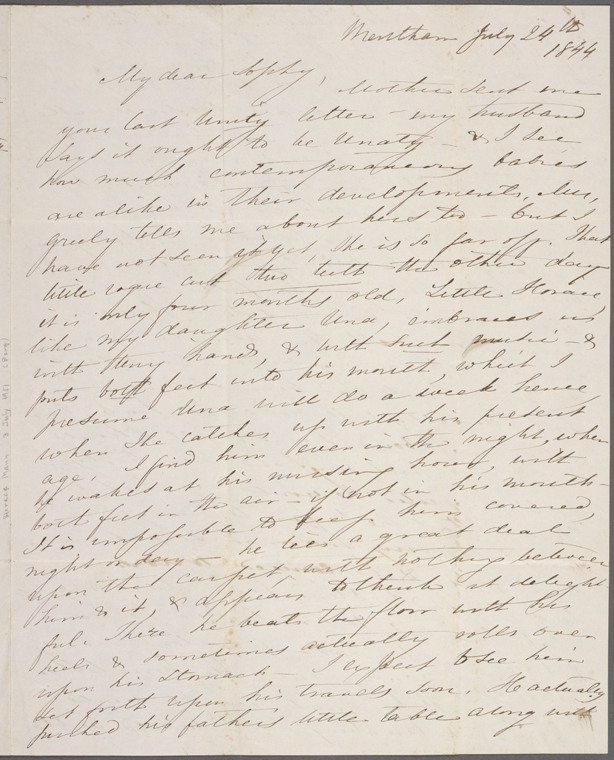 Wrentham July 24th
1844
My dear Sophy,
Mother sent me
your last Unity letter - my husband
says it ought to be Unaty - & I see
how much contemporaneous babies
are alike in their developments. Mrs.
Greely tells me about hers too - but I
have not seen it yet, she is so far off. That
little rogue cut two teeth the other day
it is only four months old. Little Horace,
like my daughter Una, embraces us
with tiny hands, & with such music - &
puts both feet into his mouth, which I
presume Una will do a week hence
when she catches up with his present
age. I find him even in the night, when
he wakes at his nursing hour, with
both feet in the air if not in his mouth -
It is impossible to keep him covered
night or day - he lies a great deal
upon the carpet with nothing between
him & it, & appears to think it delight
ful. There he beats the floor with his
heels & sometimes actually rolls over
upon his stomach - I expect to see him
set forth upon his travels soon. He actually
pushed his father's little table along with